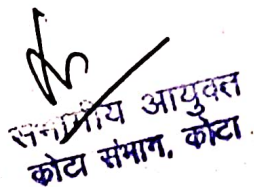 सम्भागीय आयुक्त
कोटा संभाग, कोटा